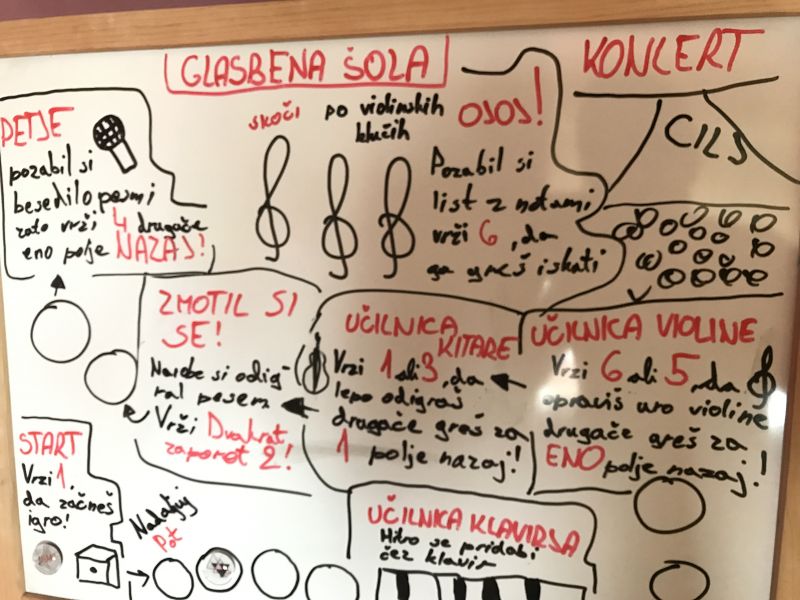 GLASBENA ŠOLA
KONCERT
CILJ
PETJE
pozabil si
besedilo pesmi
zato vrži 4 drugače
eno polje NAZAJ!
skoči
po violinskih
ključih
OJOJ!
Pozabil si
list z notami
vrži 6, da
ga greš iskati
ZMOTIL SI
SE!
Narobe si odig-
ral pesem
Vrži Dvakrat
zapored 2!
UČILNICA
KITARE
Vrži 1 ali 3, da
lepo odigraš
drugače greš za
1 polje nazaj!
UČILNICA VIOLINE
Vrži 6 ali 5, da
opraviš uro violine
drugače greš za
ENO polje nazaj!
START
Vrzi 1,
da začneš
igro!
Nadaljuj
Pot
UČILNICA KLAVIRJA
Hitro se pridobi
čez klavir